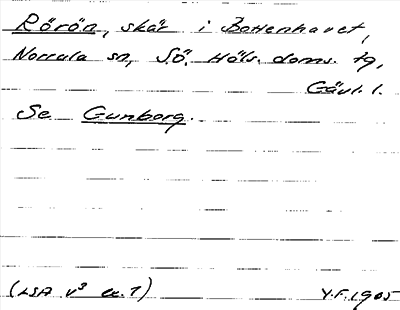 Rörön, skär i Bottenhavet,
Norrala sn, S.ö. Häls. doms. tg,
Gävl. l.
Se Gunborg.
(LSA V³ a. 1) Y.F. 1905